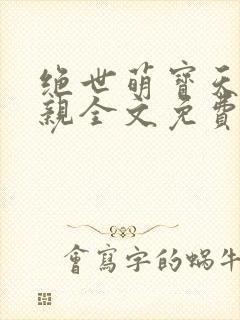 绝世萌寶天
親全文免費
會寫字的蝸牛